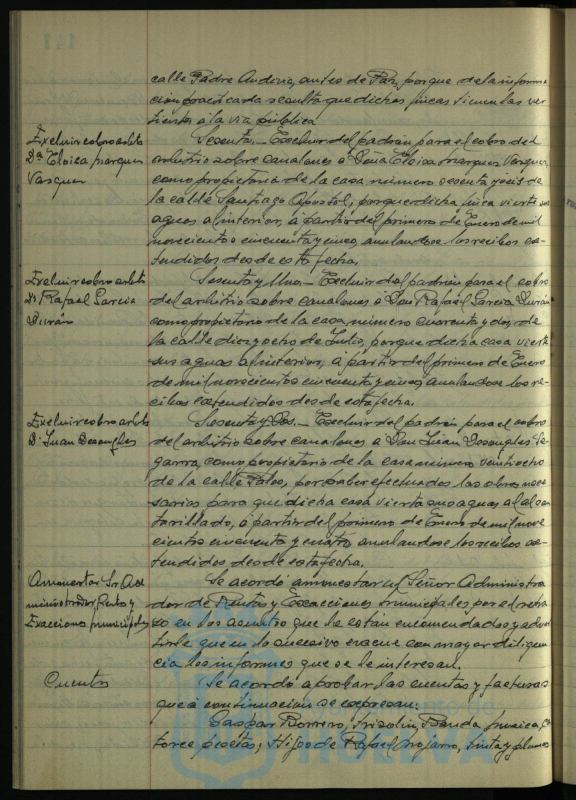 calle Padre Andivia, antes de Paz, porque de la informa
cion practicada resulta que dichas fincas tienen las ver
tientes a la via publica.
Excluir cobro arbitº
Dª Eloisa Marquez
Vazquez
Sesenta.- Excluir del padrón para el cobro del
arbitrio sobre canalones a Doña Eloisa Marquez Vazquez,
como propietaria de la casa número sesenta y seis de
la calle Santiago Apostol, porque dicha finca vierte sus
aguas al interior, a partir del primero de Enero de mil
novecientos cincuenta y cinco, anulandose los recibos ex-
tendidos desde esta fecha.
Excluir cobro arbitº
Dº Rafael Garcia
Durán
Sesenta y Uno.- Excluir del padrón para el cobro
del arbitrio sobre canalones a Don Rafael Garcia Durán
como propietario de la casa, número cuarenta y dos, de
la calle dieciocho de Julio, porque dicha casa vierte
sus aguas al interior, a partir del primero de Enero
de mil novecientos cincuenta y cinco, anulandose los re-
cibos extendidos desde esta fecha.
Excluir cobro arbitº
D. Juan Desongles
Sesenta y Dos.- Excluir del padrón, para el cobro
del arbitrio sobre canalones a Don Juan Desongles Se
garra, como propietario de la casa número veintiocho
de la calle Palos, por haber efectuados las obras nece
sarias para que dicha casa vierta sus aguas al alcan
tarillado, a partir del primero de Enero de mil nove
cientos cincuenta y cuatro, anulandose los recibos ex-
tendidos desde esta fecha.
Amonestar Sr. Ad
ministrador Rentas y
Exacciones municipales
Se acordó amonestar al Señor Administra
dor de Rentas y Exacciones municipales, por el retra
so en los asuntos que le estan encomendados y adver
tirle que en lo sucesivo evacue con mayor diligen
cia los informes que se le interesan.
Cuentas
Se acordó aprobar las cuentas y facturas
que a continuacion se expresan:
Gaspar Borrero, Banda musica, ca
torce pesetas; Hijo de Rafael Mojarro,
HUELVA